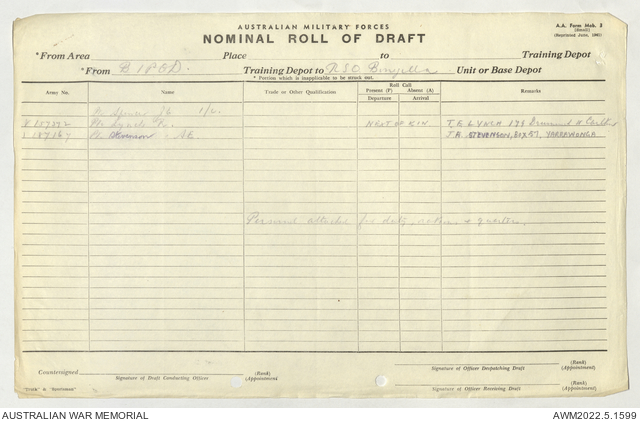 AUSTRALIAN MILITARY FORCES
NOMINAL ROLL OF DRAFT
A.A. Form Mob. 3
(Reprinted June, 1941)
*From Area Place to Training Depot
*From B.I.P.O.D. Training Depot to Unit or Base Depot
* Portion which is inapplicable to be struck out.
Army No. Name Trade or Other Qualification Roll Call Remarks
Present (P) Absent (A)
Departure Arrival
I/C.
Pte Lynch NEXT OF KIN T.E. LYNCH 179 Drummond St Carlton
Pte A.E. J.A. STEVENSON, BOX 57, YARRAWONGA
Personnel attached for duty, rations & quarters.
Countersigned (Rank)
Signature of Draft Conducting Officer (Appointment)
Signature of Officer Despatching Draft (Rank)
(Appointment)
Signature of Officer Receiving Draft (Rank)
(Appointment)
AUSTRALIAN WAR MEMORIAL AWM2022.5.1599